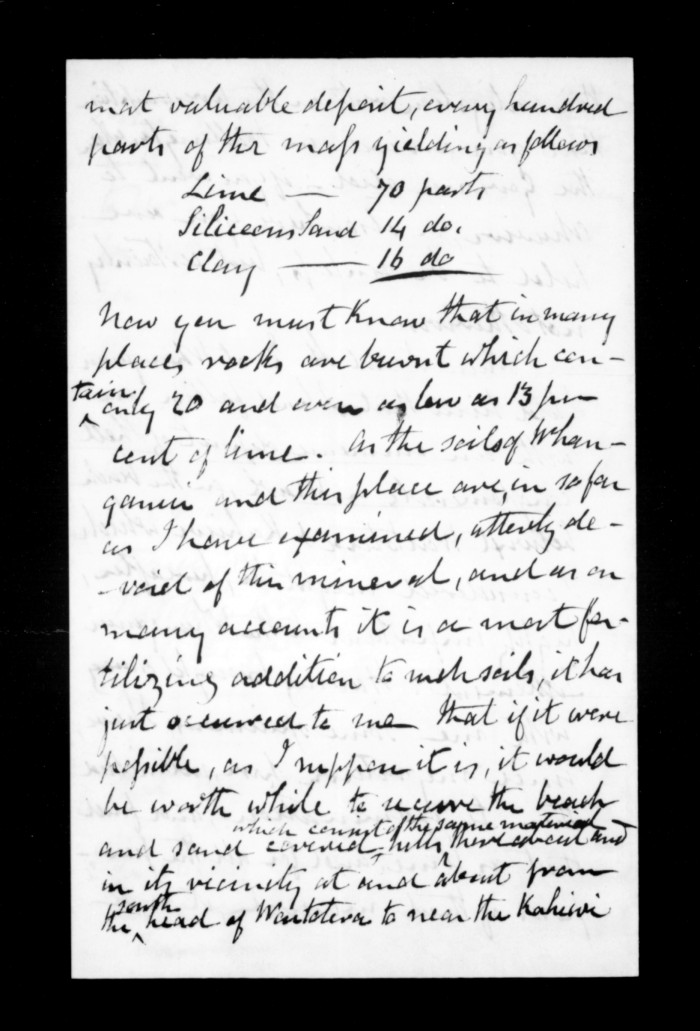 most valuable deposit, every hundred
parts of the mass yielding as follows
Lime — 70 parts
Siliceous Sand 14 do.
Clay — 16 do
Now you must know that in many
places rocks are burnt which con-
tain
only 20 and even as low as 13 per
cent of lime. As the soils of Whan-
ganui and this place are, in so far
as I have examined, utterly de-
void of this mineral, and as on
many accounts it is a most fer-
tilizing addition to such soils, it has
just occurred to me that if it were
possible, as I suppose it is, it would
be worth while to secure the beach
which consist of the same material
and sand covered hills, there about and
in its vicinity at and about from
south
the head of Waitotara to near the Kohiwi